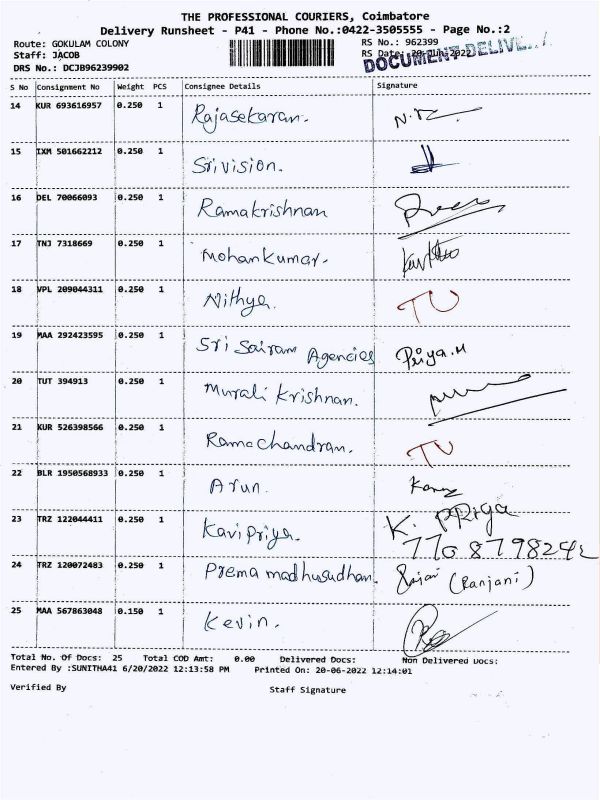 THE PROFESSIONAL COURIERS, Coimbatore
Delivery Runsheet - P41 - Phone No.:0422-3505555 - Page No.:2
Route: GOKULAM COLONY RS No.: 962399
Staff: JACOB RS Date: 20-Jun-2022
DRS No.: DCJB96239902 DOCUMENT DELIVE
S No Consignment No Weight PCS Consignee Details Signature
14 KUR 693616957 0.250 1 Rajasekaran.
15 IXM 501662212 0.250 1 Srivision.
16 DEL 70066093 0.250 1 Ramakrishnan
17 TNJ 7318669 0.250 1 Mohankumar.
18 VPL 209044311 0.250 1 Nithya. TU
19 MAA 292423595 0.250 1 Sri Sairam Agencies Priya.M
20 TUT 394913 0.250 1 Murali Krishnan.
21 KUR 526398566 0.250 1 Ramachandran. TU
22 BLR 1950568933 0.250 1 Arun.
23 TRZ 122044411 0.250 1 Kavipriya. K. PRiya
24 TRZ 120072483 0.250 1 Prema madhusudhan. (Ranjani)
25 MAA 567863048 0.150 1 Kevin.
Total No. Of Docs: 25 Total COD Amt: 0.00 Delivered Docs: Non Delivered Docs:
Entered By :SUNITHA41 6/20/2022 12:13:58 PM Printed On: 20-06-2022 12:14:01
Verified By Staff Signature